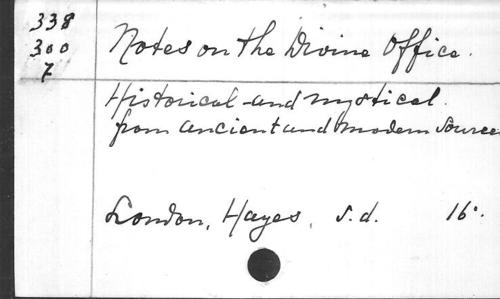 338
300
7
Notes on the Divine Office.
Historical and mystical.
from ancient and modern Sources
London, Hayes, s.d. 16°.